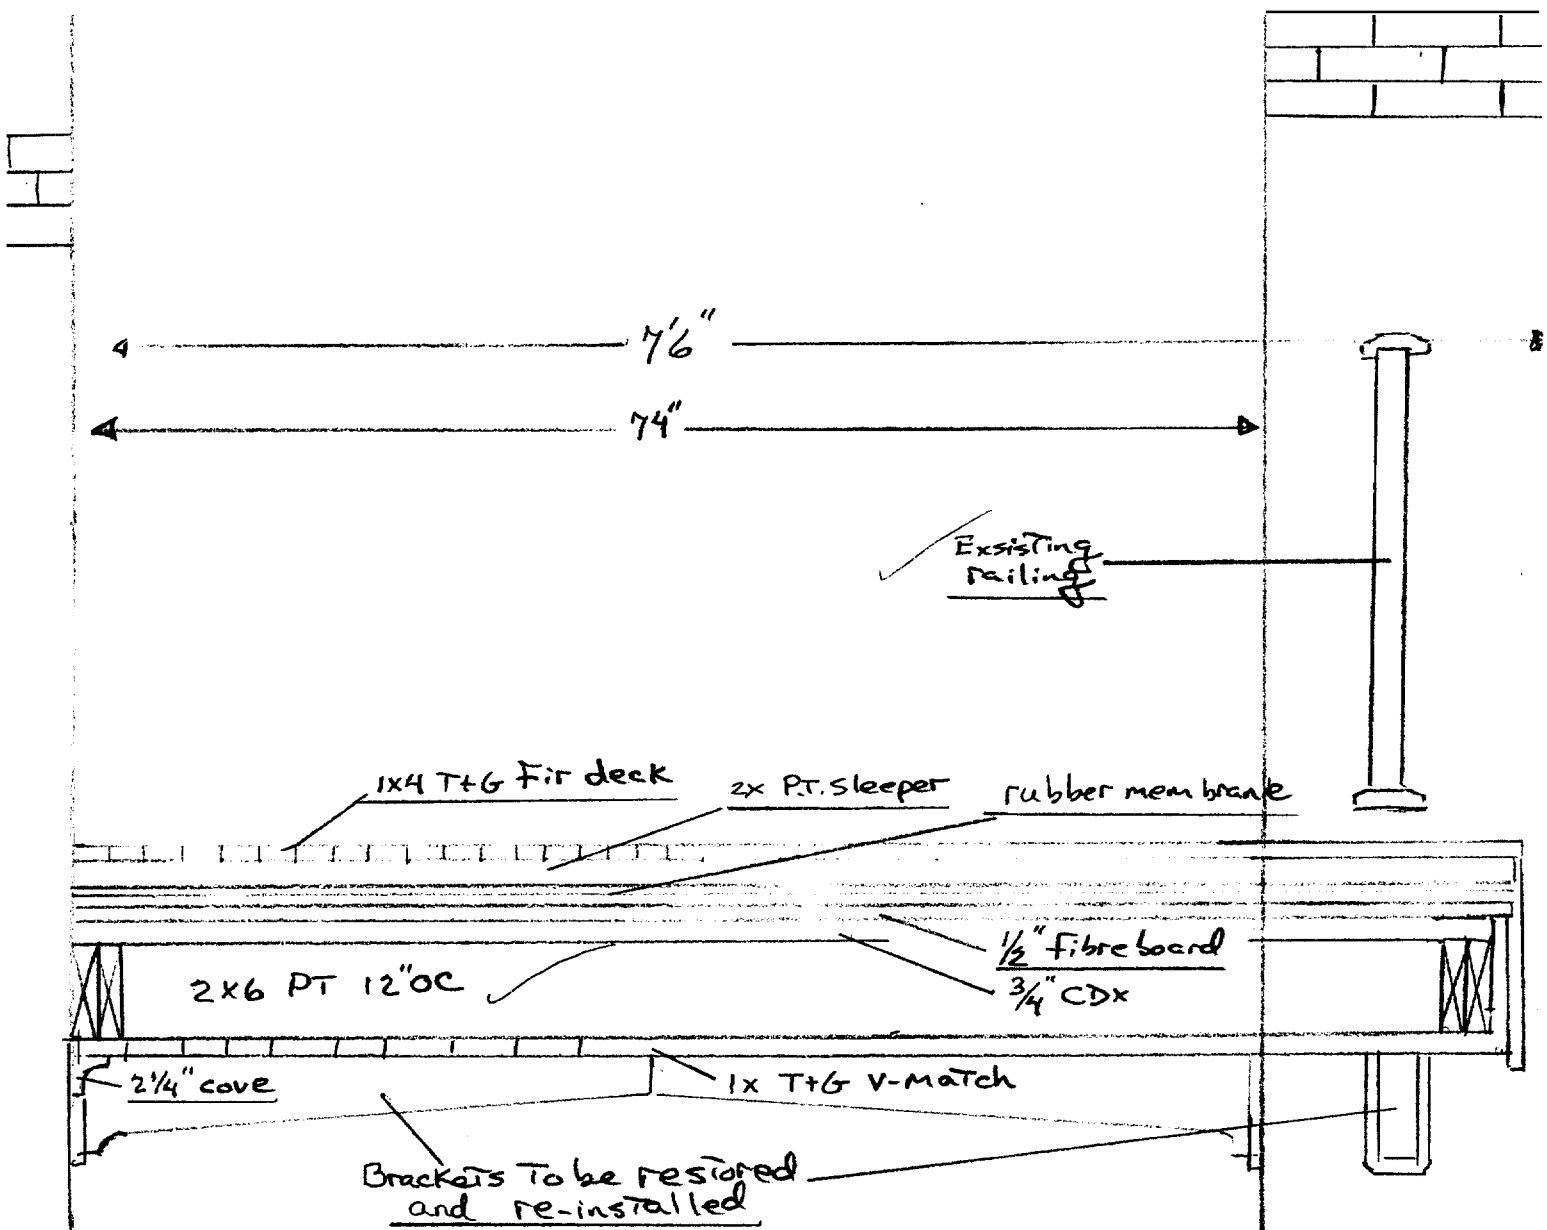 7'6"
74"
Exsisting
railing
1x4 T+G Fir deck
2x P.T. Sleeper
rubber membrane
1/2" fibreboard
3/4" CDX
2x6 PT 12"OC
2 1/4" cove
1x T+G V-MaTch
Brackets To be restored
and re-installed